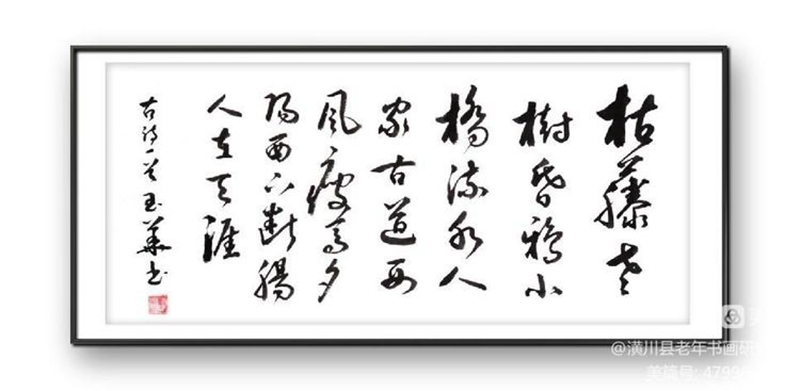 枯藤老
樹昏鴉小
橋流水人
家古道西
風瘦馬夕
陽西下断腸
人在天涯
古诗一首玉華书
@潢川县老年书画研
美篇号: 4799